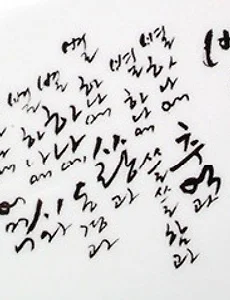 별 하나에 추억과
별 하나에 쓸쓸함과
별 하나에 사랑과
별 하나에 동경과
별 하나에 시와